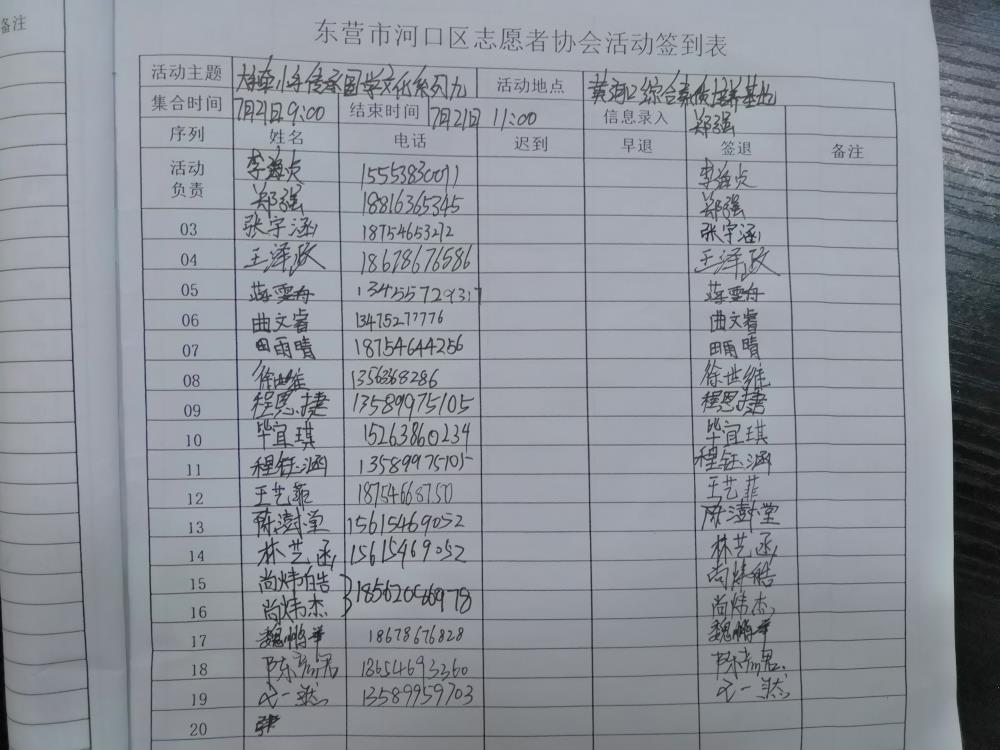 备注
东营市河口区志愿者协会活动签到表
活动主题 传承国学文化系列九 活动地点 黄河口综合素质培养基地
集合时间 7月21日9:00 结束时间 7月21日 11:00 信息录入 郑强
序列 姓名 电话 迟到 早退 签退 备注
活动负责 李海贞 15553830011 李海贞
郑强 18816365345 郑强
03 张宇涵 18754653272 张宇涵
04 王泽政 18678676586 王泽政
05 蒋雯舟 蒋雯舟
06 曲文睿 13475277776 曲文睿
07 田雨晴 18754644256 田雨晴
08 徐世维 1356368286 徐世维
09 程恩捷 13589975105 程恩捷
10 毕宜琪 15263860234 毕宜琪
11 程钰涵 13589975105 程钰涵
12 王艺菲 18754668750 王艺菲
13 陈澍堂 15615469052 陈澍堂
14 林艺函 15615469052 林艺函
15 尚炜皓 尚炜皓
16 尚炜杰 18562066978 尚炜杰
17 魏鹏华 18678676828 魏鹏华
18 陈彦君 18654693360 陈彦君
19 弋一默 13589959703 弋一默
20 张